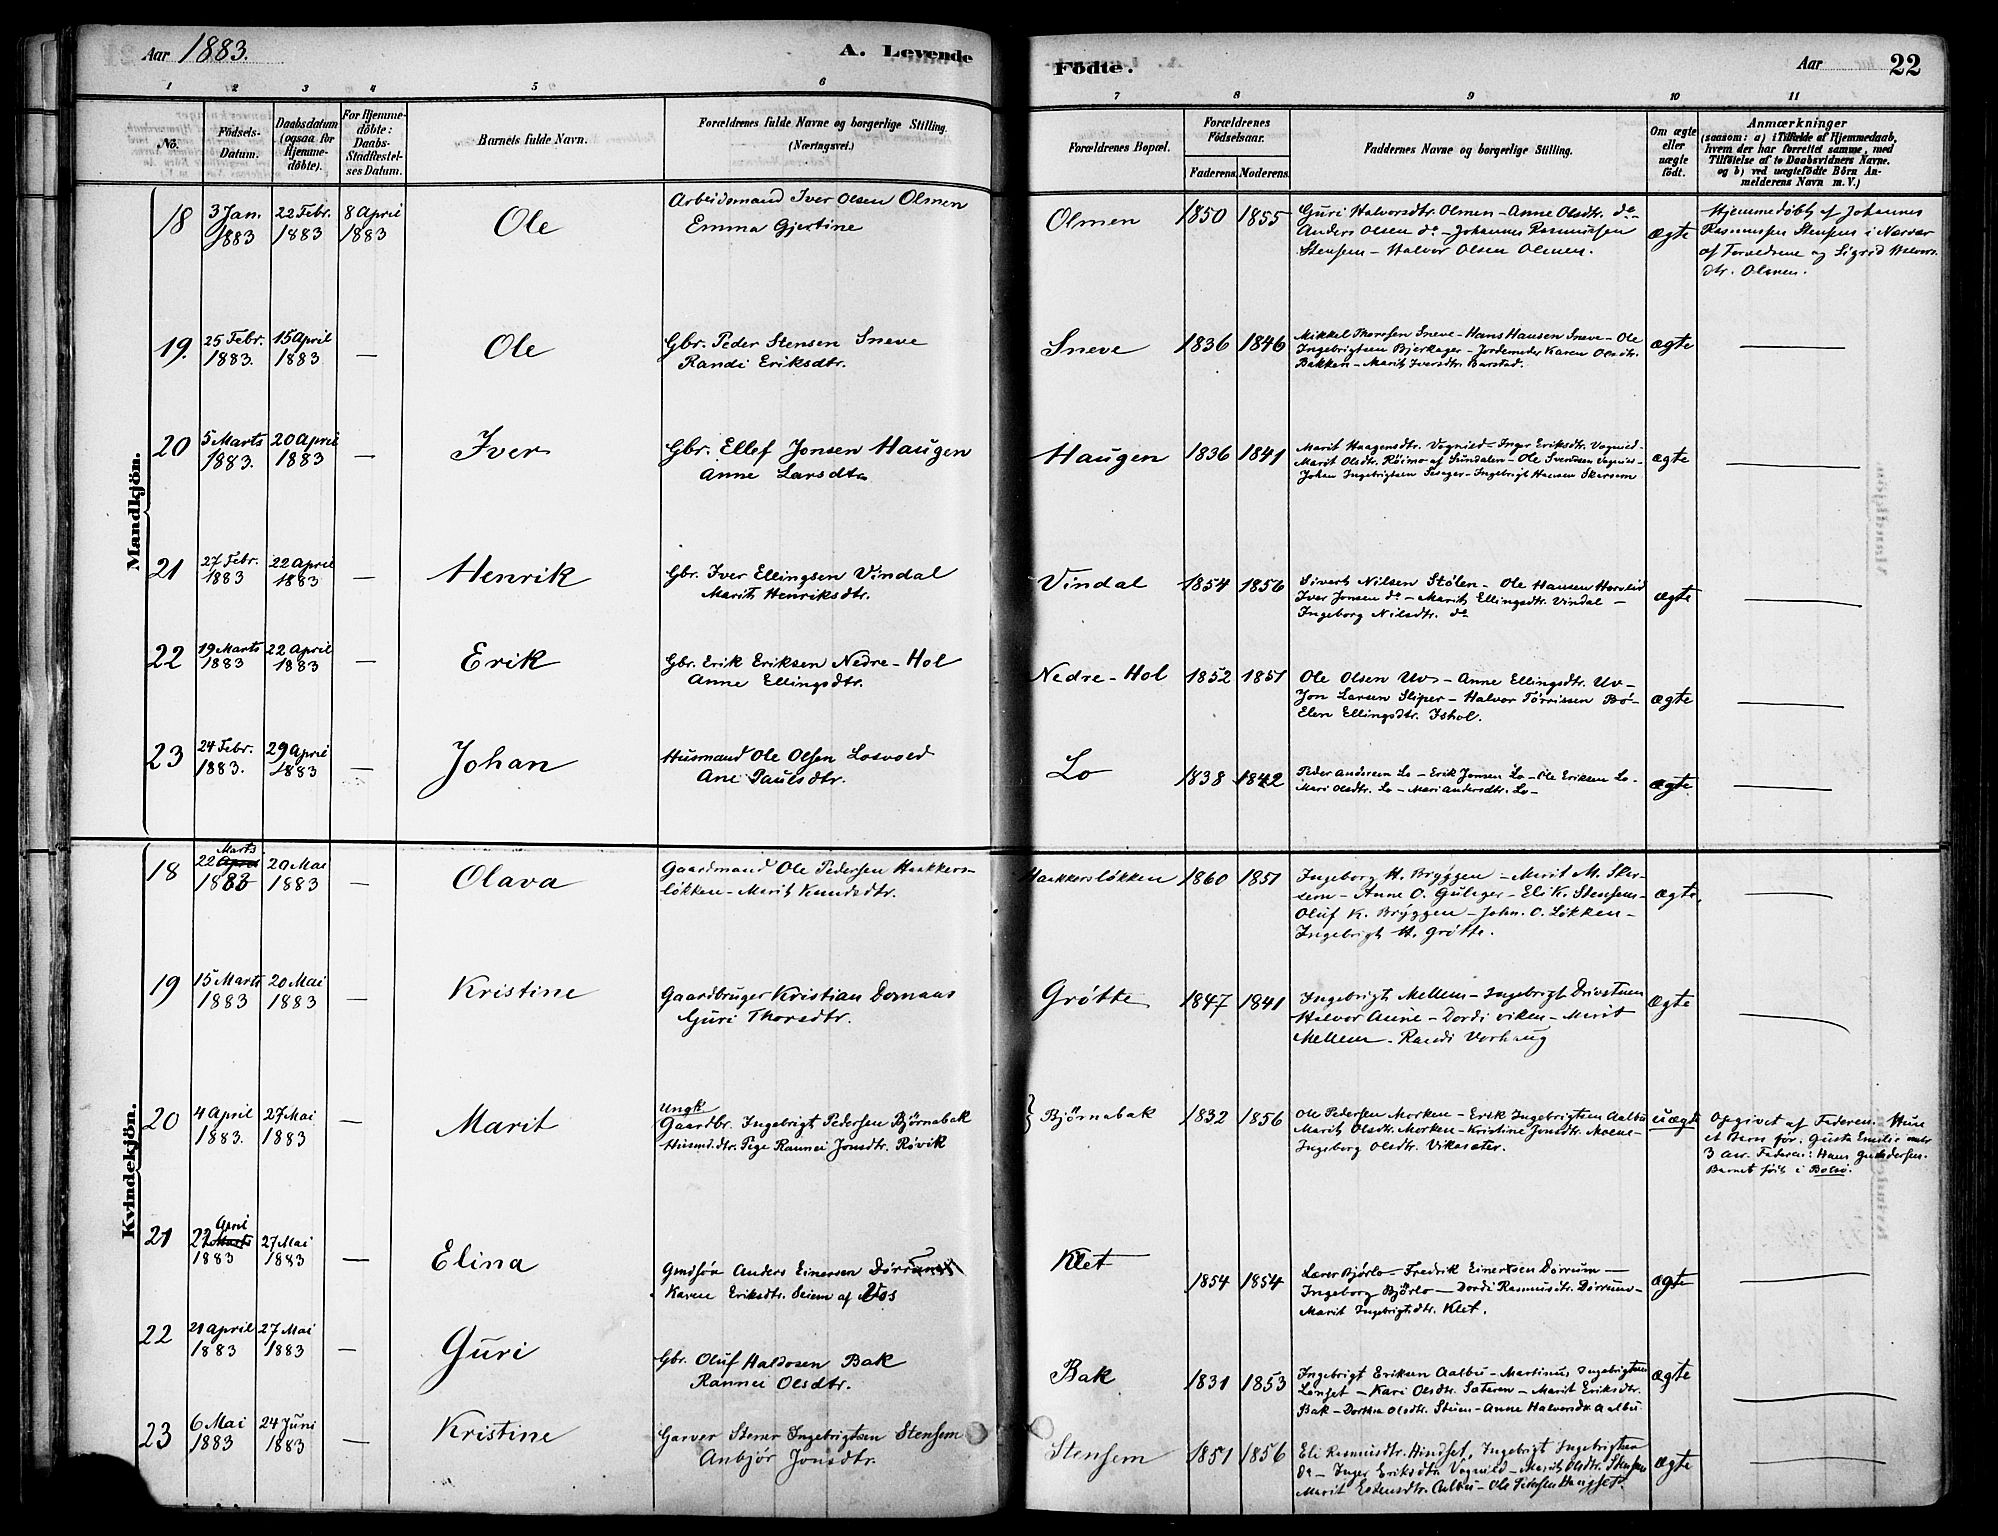 Aar 1883.
A. Levende
Födte.
Aar
22
1
2
3
4
5
6
7
8
9
10
11
No.
Födsels-
Datum.
Daabsdatum
(ogsaa for
Hjemme-
döbte).
For Hjemme-
döbte:
Daabs-
Stadfæstel-
ses Datum.
Barnets fulde Navn.
Forældrenes fulde Navne og borgerlige Stilling.
(Næringsvei.)
Forældrenes Bopæl.
Forældrenes
Födselsaar.
Faderens.
Moderens.
Faddernes Navne og borgerlige Stilling.
Om ægte
eller
uægte
født.
Anmærkninger
(saasom: a) i Tilfælde af Hjemmedaab,
hvem der har forrettet samme, med
Tilföielse af to Daabsvidners Navne.
og b) ved uægtefödte Börn An-
melderens Navn m. V.)
Mandkjön.
18
3 Jan.
1883
22 Febr.
1883
8 April
1883
Ole
Arbeidsmand Iver Olsen Olmen
Emma Gjertine
Olmen
1850
1855
Guri Halvorsdtr. Olmen - Anne Olsdtr. do
Anders Olsen do - Johannes Rasmussen
Stensem - Halvor Olsen Olmen.
ægte
Hjemmedøbt af Johannes
Rasmussen Stensem i Nærvær
af Forældrene og Sigrid Halvors
dtr. Olmen.
19.
25 Febr.
1883.
15 April
1883
—
Ole
Gbr. Peder Stensen Sneve
Randi Eriksdtr.
Sneve
1836
1846
Mikkel Thoresen Sneve - Hans Hansen Sneve - Ole
Ingebrigtsen Bjerkager - Jordemoder Karen Olsdtr.
Bakken - Marit Iversdtr. Barstad.
ægte
20
5 Marts
1883.
20 April
1883
—
Iver
Gbr. Ellef Jonsen Haugen
Anne Larsdtr
Haugen
1836
1841
Marit Haagensdtr. Vognild - Inger Eriksdtr. Vognild -
Marit Olsdtr. Røimo af Sundalen - Ole Svendsen
Johan Ingebrigtsen - Ingebrigt Hansen Skarsem
ægte
21
27 Febr.
1883
22 April
1883
—
Henrik
Gbr. Iver Ellingsen Vindal
Marit Henriksdtr.
Vindal
1854
1856
Sivert Nilsen Stølen - Ole Hansen
Iver Jonsen do - Marit Ellingsdtr. Vindal -
Ingeborg Nilsdtr. do
ægte
22
19 Marts
1883
22 April
1883
—
Erik
Gbr. Erik Eriksen Nedre-Hol
Anne Ellingsdtr.
Nedre-Hol
1852
1851
Ole Olsen Uv - Anne Ellingsdtr. Uv -
Jon Larsen Sliper - Halvor Tørrissen Bø -
Elen Ellingsdtr. Ishol.
ægte
23
24 Febr.
1883.
29 April
1883
—
Johan
Husmand Ole Olsen Losvold
Ane Paulsdtr.
Lo
1838
1842
Peder Andersen Lo - Erik Jonsen Lo - Ole Eriksen Lo -
Mari Olsdtr. Lo - Mari Andersdtr. Lo -
ægte
Kvindekjön.
18
Marts
22 April
1883
20 Mai
1883
—
Olava
Gaardmand Ole Pedersen Haakkers-
løkken - Marit Knudsdtr.
Haakkersløkken
1860
1851
Ingeborg H. Bryggen - Merit M. Skar-
sem - Anne O. Gulager - Eli K. Stensem -
Oluf K. Bryggen - John. O. Løkken -
Ingebrigt H. Grøtte.
ægte
19
15 Marts
1883
20 Mai
1883
—
Kristine
Gaardbruger Kristian Dornaas
Guri Thorsdtr.
Grøtte
1847
1841
Ingebrigt Mellem - Ingebrigt Drivstuen
Halvor Aune - Dordi Viken - Merit
Mellem - Randi Vorhaug
ægte
20
4 April
1883.
27 Mai
1883
—
Marit
Ungk
Gaardbr. Ingebrigt Pedersen Bjørnabak
Husmdtr. Pige Rannei Jonsdtr. Røvik
Bjørnabak
1832
1856
Ole Pedersen Morken - Erik Ingebrigtsen Aalbu
Marit Olsdtr. Morken - Kristine Jonsdtr. Moene -
Ingeborg Olsdtr. Viksæter.
uægte
Opgivet af Faderen. Hun
et Barn før: Gusta Emilie
3 Aar. Fader: Hans Gundersen.
Barnet født i Bolsø.
21
April
22 Marts
1883
27 Mai
1883
—
Elina
Gmdsøn Anders Einersen Dørrum
Karen Eriksdtr. Seiem af Vos
Klet
1854
1854
Lærer Bjørlo - Fredrik Einertsen Dørrum -
Ingeborg Bjørlo - Dordi Rasmusdtr. Dørrum -
Marit Ingebrigtsdtr. Klet.
ægte
22
21 April
1883
27 Mai
1883
—
Guri
Gbr. Oluf Haldosen Bak
Rannei Olsdtr.
Bak
1831
1853
Ingebrigt Eriksen Aalbu - Martinus Ingebrigtsen
Lønset - Kari Olsdtr. Sæteren - Marit Eriksdtr.
Bak - Dorthea Olsdtr. Stuen - Anne Halvorsdtr. Aalbu
ægte
23
6 Mai
1883
24 Juni
1883
—
Kristine
Garver Stener Ingebrigtsen Stensem
Anbjør Jonsdtr.
Stensem
1851
1856
Eli Rasmusdtr. Hindset, Ingebrigt Ingebrigtsen
do - Inger Eriksdtr. Vognild - Marit Olsdtr. Stensem
Marit Estensdtr. Aalbu - Ole Haugset.
ægte